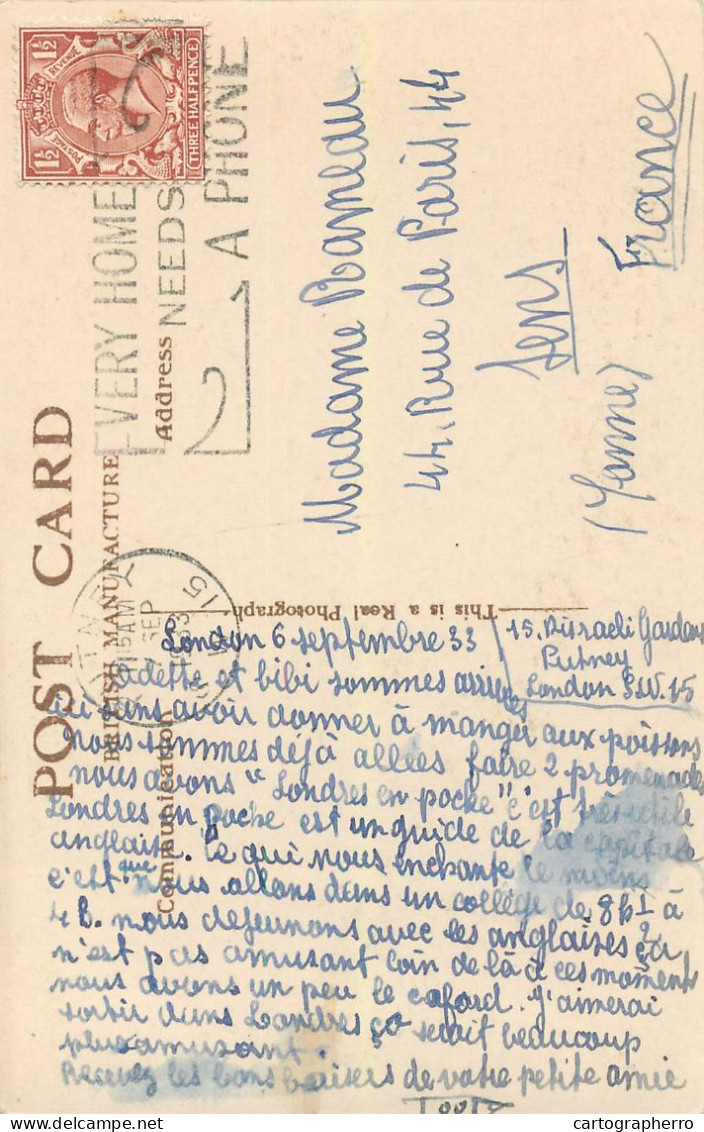 POST CARD
BRITISH MANUFACTURE
Communication
Address
This is a Real Photograph.
1½
1½
POSTAGE
REVENUE
THREE HALFPENCE
EVERY HOME
NEEDS
A PHONE
PUTNEY
15 AM
SEP
1933
15
Madame Rameau
44, Rue de Paris, 44
Sens
(Yonne)
France
London 6 septembre 33
15. Disraeli Gardens
Putney
London S.W.15
Odette et bibi sommes arrivées
ici sans avoir donner à manger aux poissons
nous sommes déjà allées faire 2 promenades
nous avons "Londres en poche" c'est très utile
Londres en Poche est un guide de la capitale
anglaise. Ce qui nous enchante le moins
c'est que nous allons dans un collège de 8h½ à
4h. nous dejeunons avec les anglaises ça
n'est pas amusant loin de là à ces moments
nous avons un peu le cafard. J'aimerai
sortir dans Londres ça serait beaucoup
plus amusant.
Recevez les bons baisers de votre petite amie
cartographerro